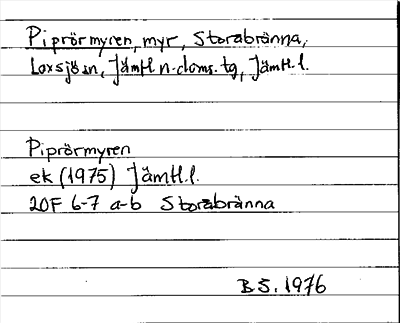 Piprörmyren, myr, Storabränna,
Laxsjö sn, Jämtl. n. doms. tg, Jämtl. l.
Piprörmyren
ek (1975) Jämtl. l.
20F 6-7 a-b Storabränna
B.S. 1976